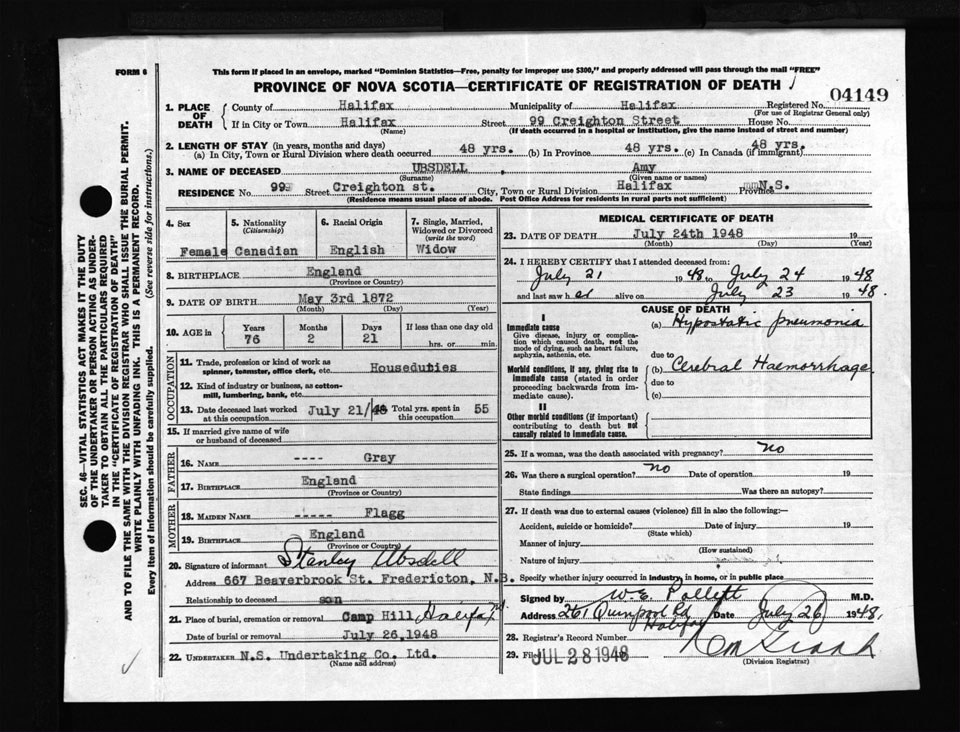 FORM 6
This form if placed in an envelope, marked "Dominion Statistics—Free, penalty for improper use $300," and properly addressed will pass through the mail "FREE"
PROVINCE OF NOVA SCOTIA—CERTIFICATE OF REGISTRATION OF DEATH
04149
1. PLACE OF DEATH
County of Halifax Municipality of Halifax Registered No.
(For use of Registrar General only)
If in City or Town Halifax Street 99 Creighton Street House No.
(Name) (If death occurred in a hospital or institution, give the name instead of street and number)
2. LENGTH OF STAY (in years, months and days)
(a) In City, Town or Rural Division where death occurred 48 yrs. (b) In Province 48 yrs. (c) In Canada (if immigrant) 48 yrs.
3. NAME OF DECEASED UBSDELL Amy
(Surname) (Given name or names)
RESIDENCE No 99 Street Creighton st. City, Town or Rural Division Halifax Province N.S.
(Residence means usual place of abode. Post Office Address for residents in rural parts not sufficient)
4. Sex
Female
5. Nationality
(Citizenship)
Canadian
6. Racial Origin
English
7. Single, Married, Widowed or Divorced
(write the word)
Widow
8. BIRTHPLACE England
(Province or Country)
9. DATE OF BIRTH May 3rd 1872
(Month) (Day) (Year)
10. AGE in
Years Months Days If less than one day old
76 2 21 hrs. or min.
OCCUPATION
11. Trade, profession or kind of work as
spinner, teamster, office clerk, etc. Houseduties
12. Kind of industry or business, as cotton-
mill, lumbering, bank, etc.
13. Date deceased last worked at this occupation July 21/48 Total yrs. spent in this occupation 55
15. If married give name of wife
or husband of deceased
FATHER
16. NAME ---- Gray
17. BIRTHPLACE England
(Province or Country)
MOTHER
18. MAIDEN NAME ----- Flagg
19. BIRTHPLACE England
(Province or Country)
20. Signature of informant Stanley Ubsdell
Address 667 Beaverbrook St. Fredericton, N.B.
Relationship to deceased son
21. Place of burial, cremation or removal Camp Hill Halifax
Date of burial or removal July 26,1948
22. UNDERTAKER N.S. Undertaking Co. Ltd.
(Name and address)
MEDICAL CERTIFICATE OF DEATH
23. DATE OF DEATH July 24th 1948 19
(Month) (Day) (Year)
24. I HEREBY CERTIFY that I attended deceased from:
July 21 1948 to July 24 1948
and last saw her alive on July 23 1948.
CAUSE OF DEATH
I
Immediate cause
Give disease, injury or complication which caused death, not the mode of dying, such as heart failure, asphyxia, asthenia, etc.
(a) Hypostatic pneumonia
due to
Morbid conditions, if any, giving rise to immediate cause (stated in order proceeding backwards from immediate cause).
(b) Cerebral Haemorrhage
due to
(c)
II
Other morbid conditions (if important) contributing to death but not causally related to immediate cause.
25. If a woman, was the death associated with pregnancy? no
26. Was there a surgical operation? no Date of operation 19
State findings Was there an autopsy?
27. If death was due to external causes (violence) fill in also the following:—
Accident, suicide or homicide? Date of injury 19
(State which)
Manner of injury
(How sustained)
Nature of injury
Specify whether injury occurred in industry, in home, or in public place
Signed by W.E. Pollett M.D.
Address 261 Quinpool Rd Halifax Date July 26 1948.
28. Registrar's Record Number
29. Filed JUL 28 1948
(Division Registrar)
SEC. 46—VITAL STATISTICS ACT MAKES IT THE DUTY
OF THE UNDERTAKER OR PERSON ACTING AS UNDER-
TAKER TO OBTAIN ALL THE PARTICULARS REQUIRED
IN THE "CERTIFICATE OF REGISTRATION OF DEATH"
AND TO FILE THE SAME WITH THE DIVISION REGISTRAR WHO SHALL ISSUE THE BURIAL PERMIT.
WRITE PLAINLY WITH UNFADING INK. THIS IS A PERMANENT RECORD.
Every item of information should be carefully supplied. (See reverse side for instructions.)